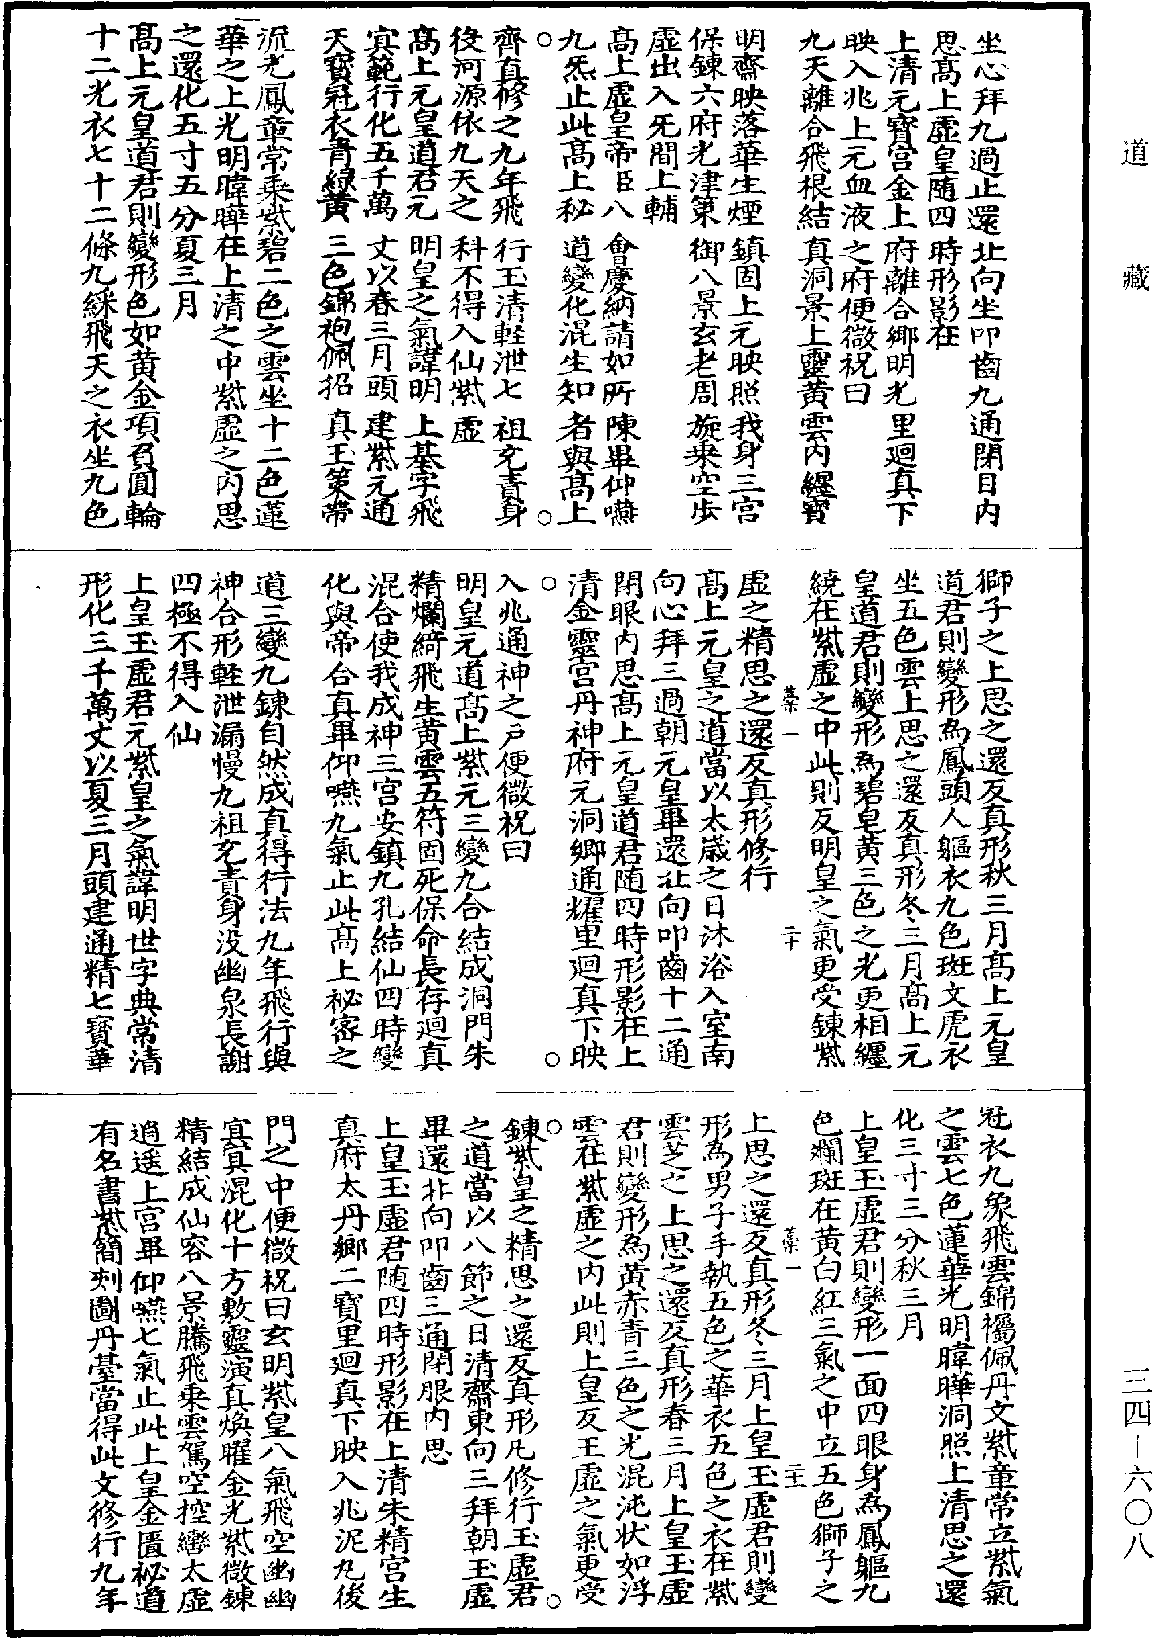 道藏
坐心拜九過止還北向坐叩齒九通閉目内
思髙上虛皇随四時形影在
上清元寳宫金上府離合鄉明光里廻真下
映入兆上元血液之府便微祝曰
九天離合飛根結真洞景上靈黄雲内纒寳
明齋映落華生煙鎮固上元映照我身三宫
保鍊六府光津策御八景玄老周旋乗空步
虛出入旡間上輔
髙上虛皇帝臣八會慶納請如所陳畢仰嚥
九炁止此髙上秘道變化混生知者與髙上
齊真修之九年飛行玉清軽泄七祖充責身
後河源依九天之科不得入仙紫虛
髙上元皇道君元明皇之氣諱明上基字飛
冥範行化五千萬丈以春三月頭建紫元通
天寳冠衣青綠黄三色錦袍佩招真玉策帶
流光鳳章常乘紫碧二色之雲坐十二色蓮
華之上光明暐曄在上清之中紫虛之内思
之還化五寸五分夏三月
髙上元皇道君則變形色如黄金項負圓輪
十二光衣七十二條九綵飛天之衣坐九色
獅子之上思之還反真形秋三月髙上元皇
道君則變形為鳳頭人軀衣九色斑文虎衣
坐五色雲上思之還反真形冬三月髙上元
皇道君則變形為碧皂黄三色之光更相纒
繞在紫虛之中此則反明皇之氣更受錬紫
虛之精思之還反真形修行
髙上元皇之道當以太歲之日沐浴入室南
向心拜三過朝元皇畢還北向叩齒十二通
閉眼内思髙上元皇道君随四時形影在上
清金靈宫丹神府元洞鄉通耀里廻真下映
入兆通神之戸便微祝曰
明皇元道髙上紫元三變九合結成洞門朱
精爛綺飛生黄雲五符固死保命長存廻真
混合使我成神三宫安鎮九孔結仙四時變
化與帝合真畢仰嚥九氣止此髙上秘密之
道三變九錬自然成真得行法九年飛行與
神合形軽泄漏慢九祖充責身没幽泉長謝
四極不得入仙
上皇玉虛君元紫皇之氣諱明世字典常清
形化三千萬丈以夏三月頭建通精七寳華
冠衣九象飛雲錦襡佩丹文紫章常立紫氣
之雲七色蓮華光明暐曄洞照上清思之還
化三寸三分秋三月
上皇玉虛君則變形一面四眼身為鳳軀九
色斕斑在黄白紅三氣之中立五色獅子之
上思之還反真形冬三月上皇玉虛君則變
形為男子手執五色之華衣五色之衣在紫
雲芝之上思之還反真形春三月上皇玉虛
君則變形為黄赤青三色之光混沌狀如浮
雲在紫虛之内此則上皇反王虛之氣更受
錬紫皇之精思之還反真形凡修行玉虛君
之道當以八節之日清齋東向三拜朝玉虛
畢還北向叩齒三通閉眼内思
上皇玉虛君随四時形影在上清朱精宫生
真府太丹鄉二寳里廻真下映入兆泥丸後
門之中便微祝曰玄明紫皇八氣飛空幽幽
冥冥混化十方敷靈演真煥曜金光紫微錬
精結成仙容八景騰飛乗雲駕空控轡太虛
逍遥上宫畢仰嚥七氣止此上皇金匱秘道
有名書紫簡刻圖丹臺當得此文修行九年
三四-六〇八